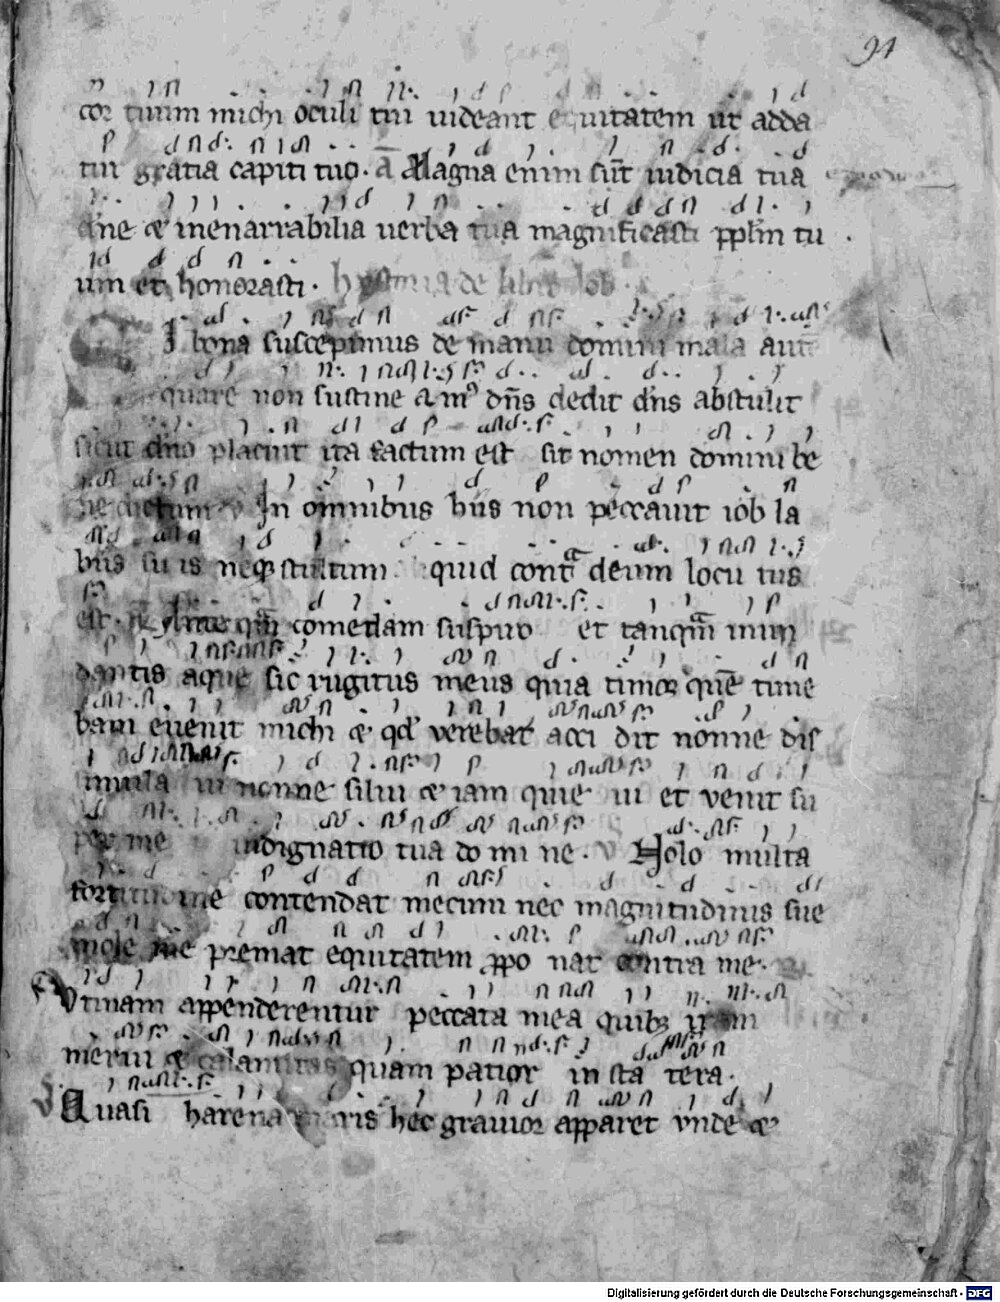 91
cor tuum michi oculi tui uideant equitatem ut adda
tur gratia capiti tuo. a Magna enim sunt iudicia tua
dne & inenarrabilia uerba tua magnificasti pplm tu
um et honorasti. hystoria de libro Iob.
SI bona suscepimus de manu domini mala aut
quare non sustine am9 dns dedit dns abstulit
sicut dno placuit ita factum est sit nomen domini be
ne dictum v In omnibus hiis non peccauit iob la
biis su is neq stultum quid contra deum locu tus
est. comedam suspiro et tanqm inun
dantis aque sic rugitus meus quia timor que time
bam euenit michi & qd verebar acci dit nonne dis
simula ui nonne silui & iam quie ui et venit su
per me indignatio tua do mi ne. v Nolo multa
fortitu ine contendat mecum nec magnitudinis sue
mole me premat equitatem ppo nat contra me.
Vtinam appenderentur peccata mea quibz iram
merui & calamitas quam patior in sta tera.
v Quasi harena maris hec grauior apparet vnde &
Digitalisierung gefördert durch die Deutsche Forschungsgemeinschaft - DFG